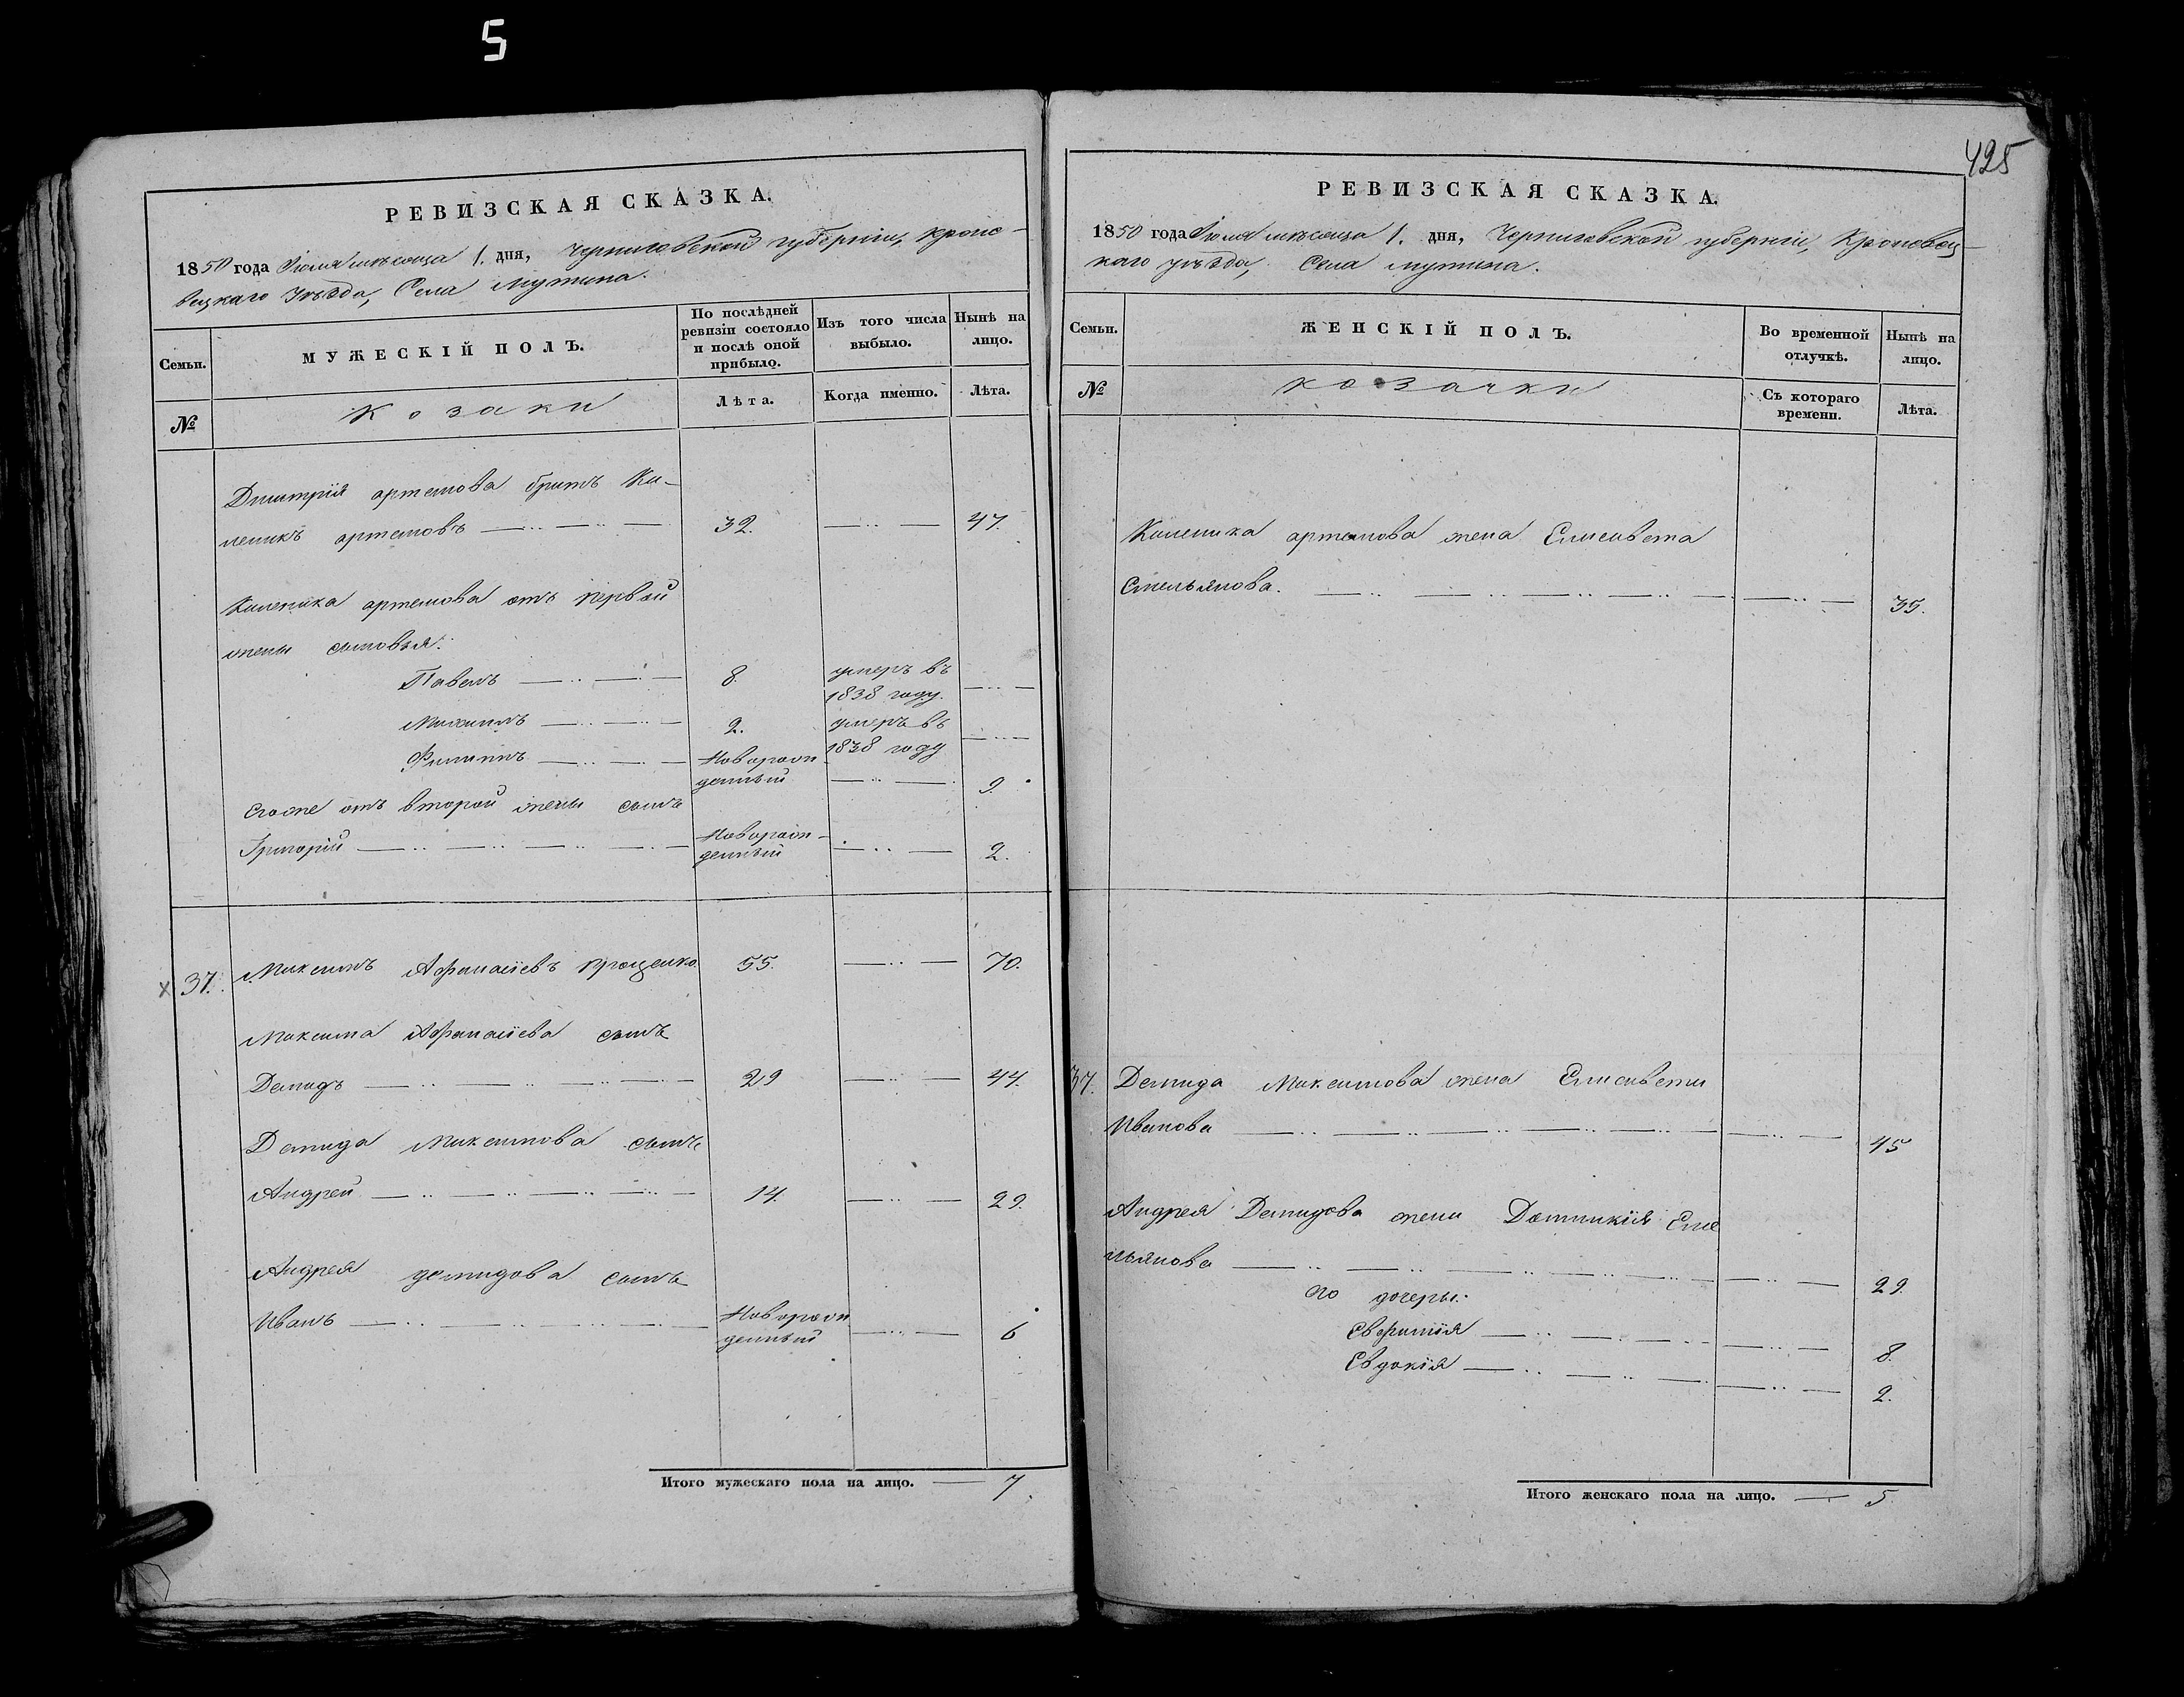 5
РЕВИЗСКАЯ СКАЗКА.
1850 года Іюля мѣсяца 1. дня, Черниговской губерніи, Кроле-
вецкаго уѣзда, Села Мутина.
Семьи.
МУЖЕСКІЙ ПОЛЪ.
По послѣдней
ревизіи состояло
и послѣ оной
прибыло.
Изъ того числа
выбыло.
Нынѣ на
лицо.
№
Козаки
Лѣта.
Когда именно.
Лѣта.
Дмитрія артемова братъ Ки-
ликъ артемовъ 32. 47.
артемова отъ первой
жены сыновья:
Павелъ 8. умеръ въ
1838 году.
Михаилъ 2. умеръ въ
1838 году
Филиппъ Новорож-
денный 9.
Егоже отъ второй жены сынъ
Григорій Новорож-
денный 2.
37. Максимъ Афанасіевъ 55. 70.
Максима Афанасіева сынъ
Демидъ 29 44.
Демида Максимова сынъ
Андрей 14. 29.
Андрея демидова сынъ
Иванъ Новорож
денный 6
Итого мужескаго пола на лицо. 7.
425
РЕВИЗСКАЯ СКАЗКА.
1850 года Іюля мѣсяца 1. дня, Черниговской губерніи, Кролевец-
каго уѣзда, Села Мутина.
Семьи.
ЖЕНСКІЙ ПОЛЪ.
Во временной
отлучкѣ.
Нынѣ на
лицо.
№
козачки
Съ котораго
времени.
Лѣта.
артемова жена Елисавета
Емельянова. 35.
37. Демида Максимова жена Елисавета
Иванова 45
Андрея Демидова жена Домникія Еме
льянова 29.
дочеры:
Евфимія 8.
Евдокія 2.
Итого женскаго пола на лицо. 5.